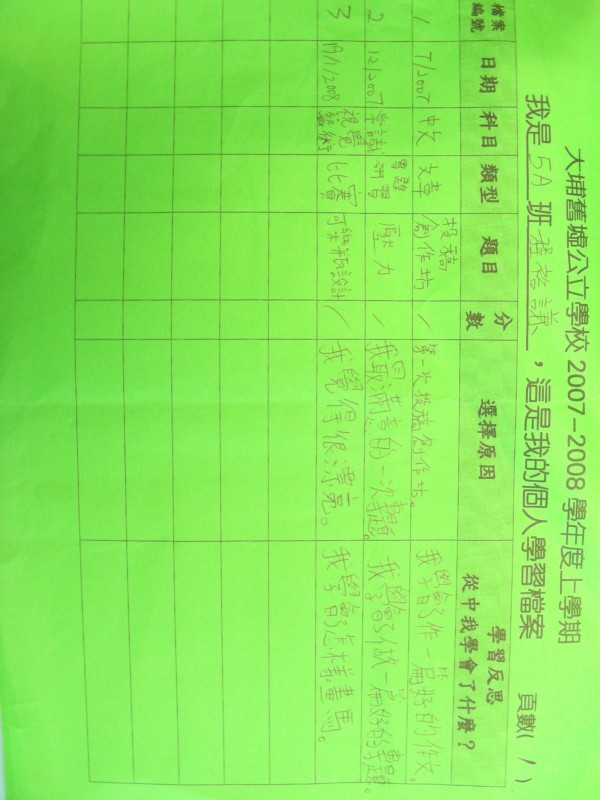 大埔舊墟公立學校 2007-2008 學年度上學期
我是 5A 班 議，這是我的個人學習檔案 頁數( 1 )
檔案編號 日期 科目 類型 題目 分數 選擇原因 學習反思 從中我學會了什麼？
1 7/2007 中文 文章 投稿創作坊 / 第一次投稿創作坊。 我學會了作一篇好的作文。
2 12/2007 常識 專題研習 壓力 / 我最滿意的一次專題。 我學會了做一篇好的專題。
3 19/1/2008 視覺藝術 比賽 可樂瓶設計 / 我覺得很漂亮。 我學會了怎樣畫馬。